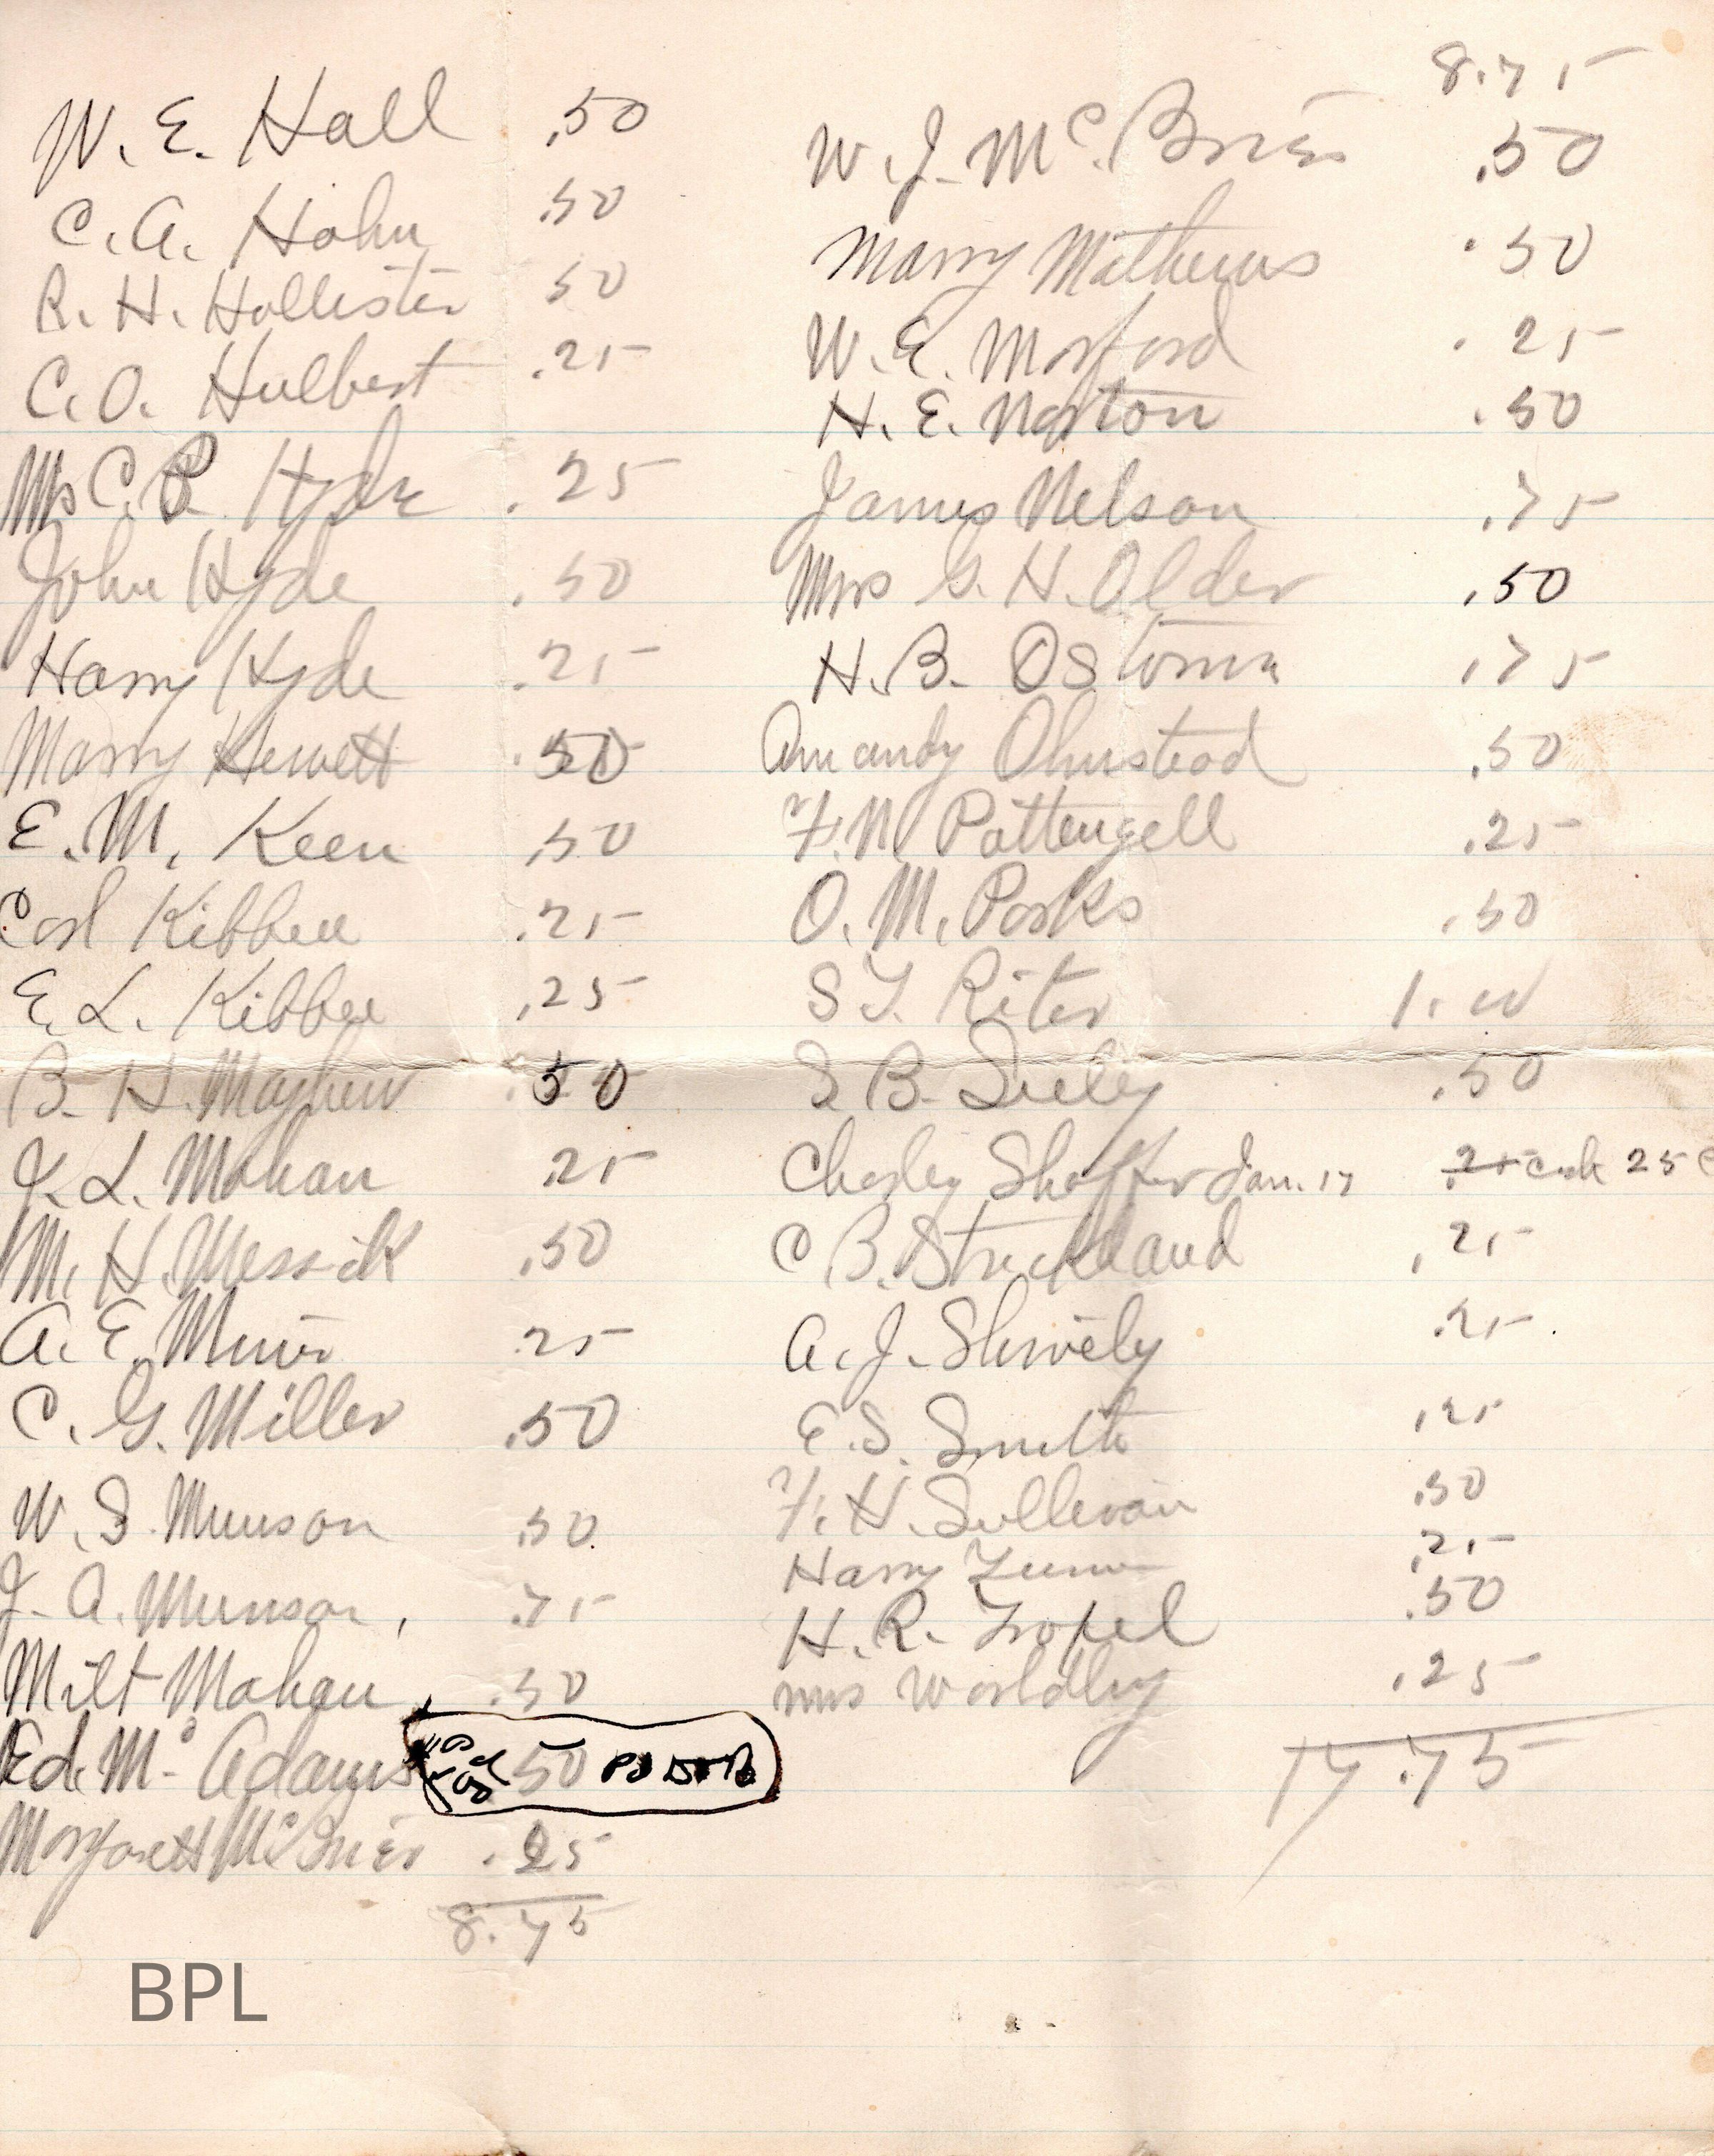 W. E. Hall .50
C. A. Hahn .50
R. H. Hollister 50
C. O. Hulbert .25
Mrs C. B. Hyde .25
John Hyde .50
Harry Hyde .25
Marry Hewett .50
E. M. Keen .50
Carl Kibbee .25
E. L. Kibbee .25
B. H. Mayhew .50
J. L. Mahan .25
M. H. Messick .50
A. E. Muir 25
C. G. Miller .50
W. S. Munson .50
J. A. Munson, .75
Milt Mahan .50
Ed. Mc Adams .50
Margarett McBrier .25
8.75
8.75
W. J. Mc.Brier .50
Marry Mathews .50
W. E. Morford .25
H. E. Norton .50
James Nelson .75
Mrs G. H. Older .50
H. B. Ostrom .75
Amandy Olmstead .50
F. N. Pattengell .25
O. M. Parks .50
S T. Riter 1.00
S. B. Seeley .50
Charley Shaffer Jan. 17 .25 cash 25 c
C B. Strickland .25
A. J. Shively .25
E. S. Smith .25
F. H. Sullivan .50
Harry .25
H. R. Tropel .50
mrs Worldley .25
17.75
BPL